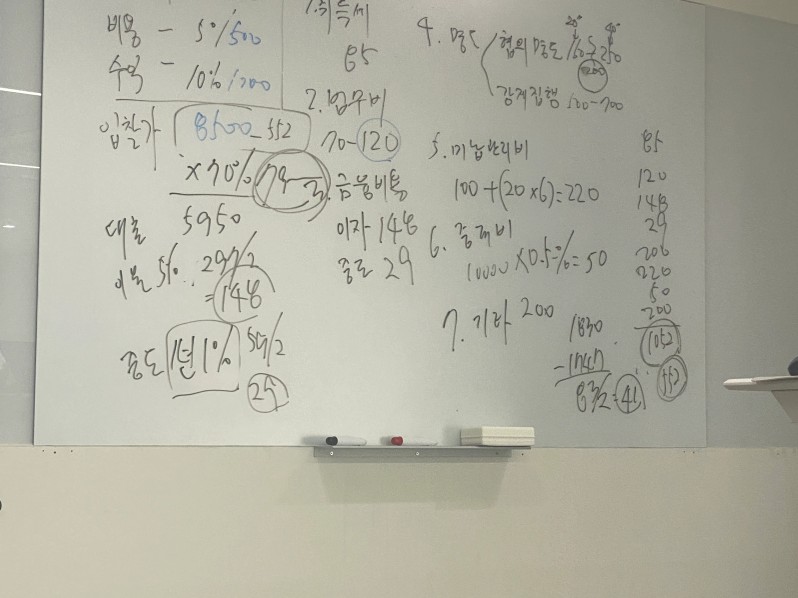 비용 - 5%/500
수익 - 10%/1000
입찰가 8500-552
×70%
대출 5950
이율 5% 297/2
=148
중도 1년 1% 59/2
29
1. 취득세
85
2. 법무비
70-120
3. 금융비용
이자 148
중도 29
4. 명도
협의명도 150~250
200
강제집행 500-700
5. 미납관리비
100+(20×6)=220
6. 중개비
10000×0.5%=50
7. 기타 200
1830
-1747
83/2=41
85
120
148
29
200
220
50
200
1052
552